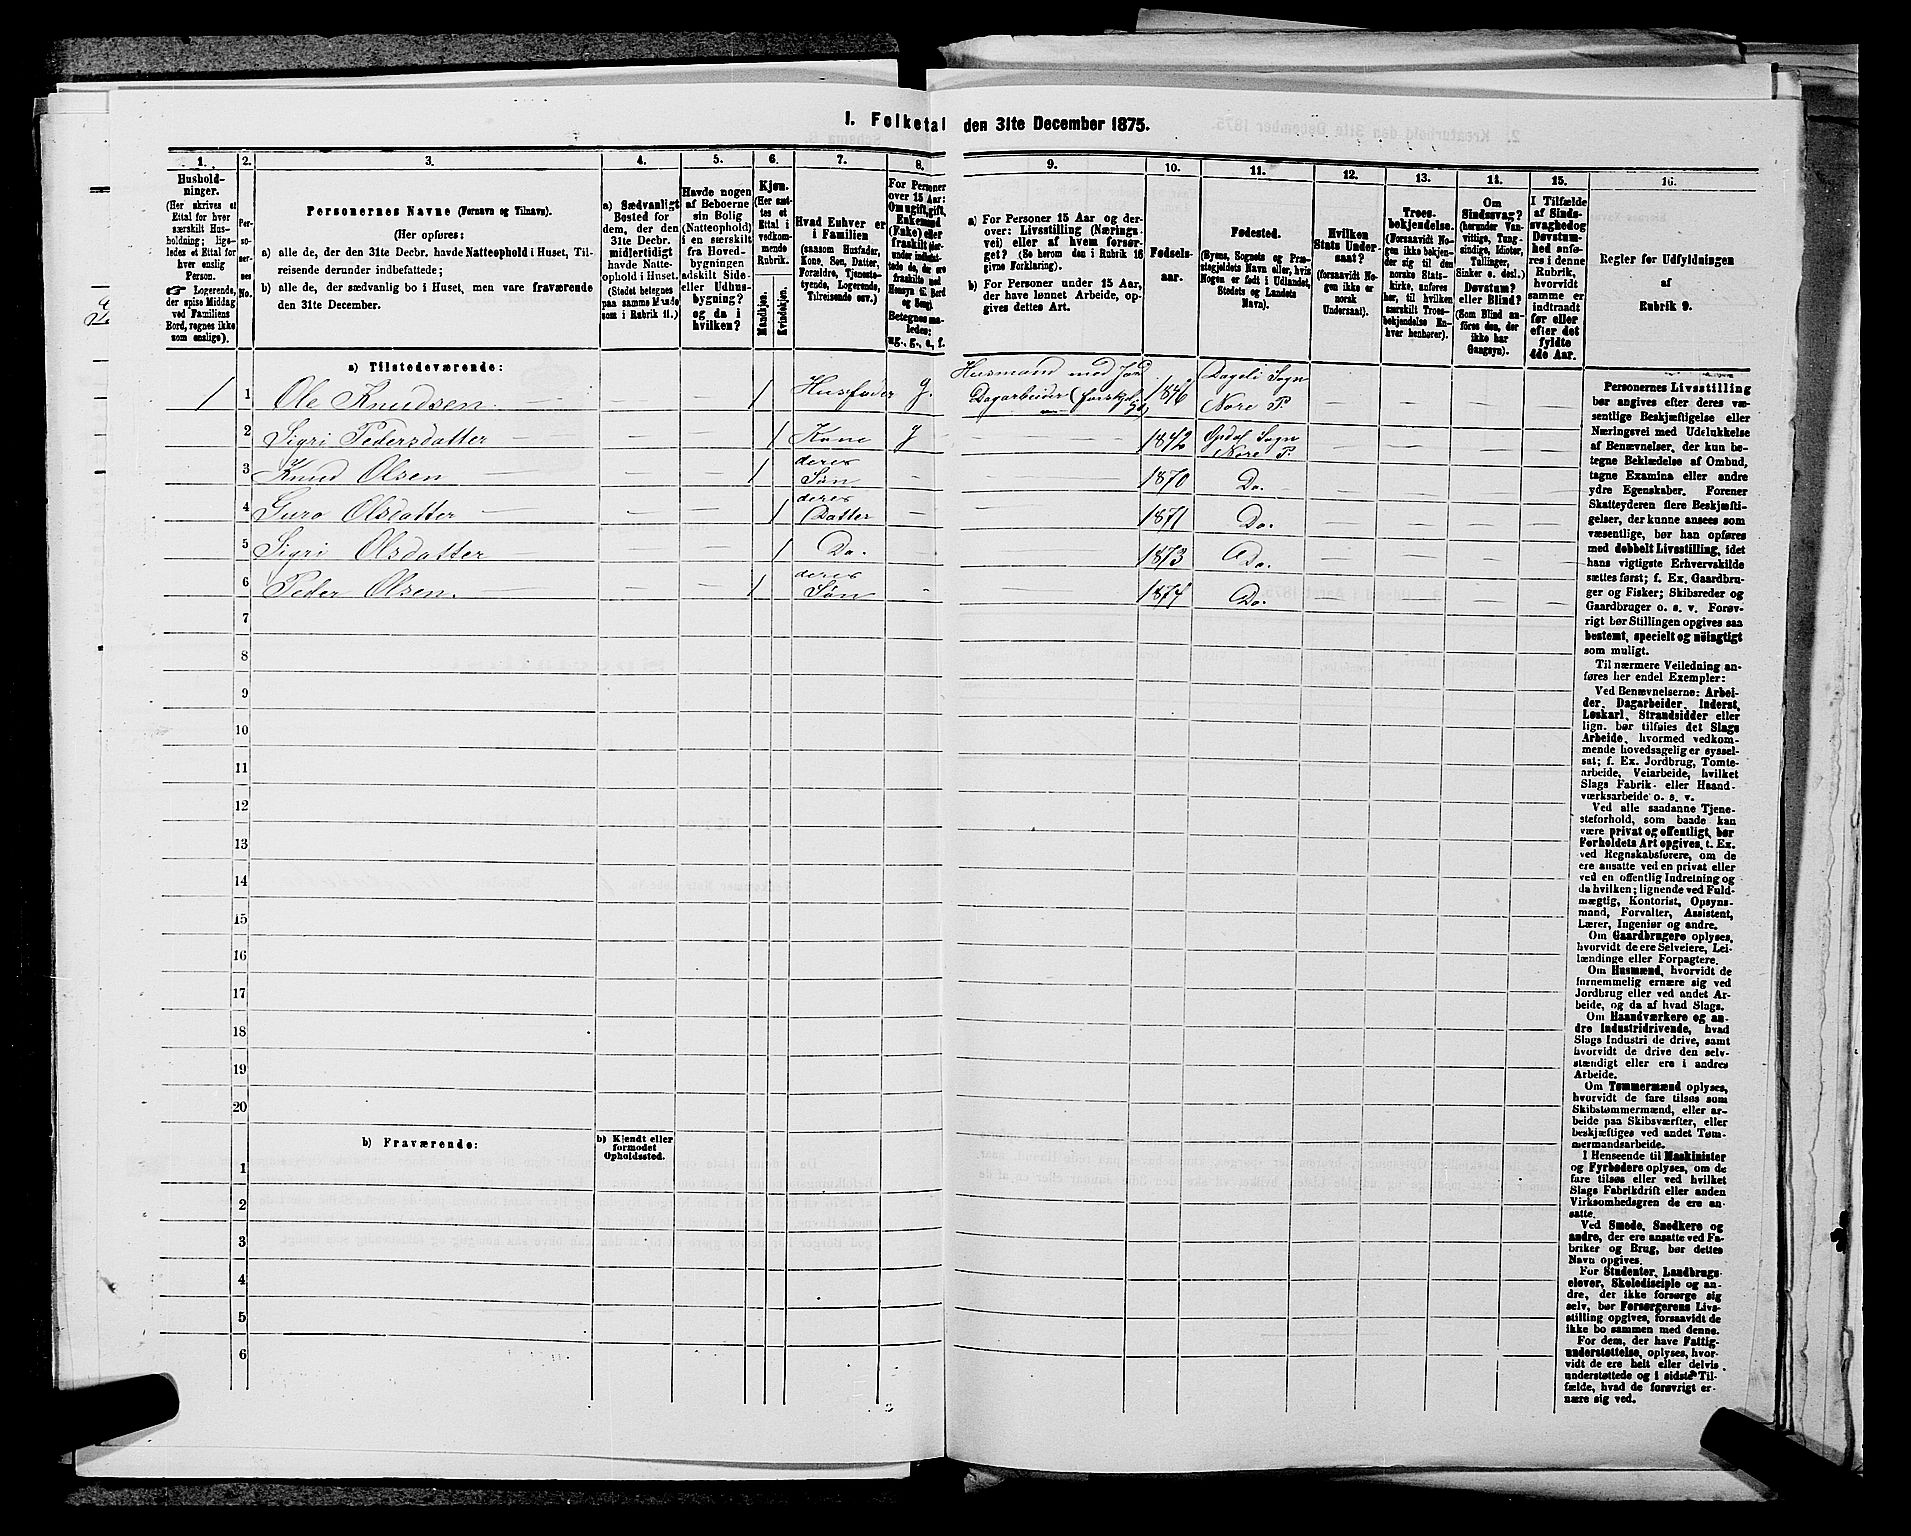 1. Folketal den 31te December 1875.
1.
2.
3.
4.
5.
6.
7.
8.
9.
10.
11.
12.
13.
14.
15.
16.
Hushold-
ninger.
(Her skrives et
Ettal for hver
særskilt Hus-
holdning; lige-
ledes et Ettal for
hver enslig
Person.
☞ Logerende,
der spise Middag
ved Familiens
Bord, regnes ikke
som enslige).
Per-
so-
ner-
nes
No.
Personernes Navne (Fornavn og Tilnavn).
(Her opføres:
a) alle de, der den 31te Decbr. havde Natteophold i Huset, Til-
reisende derunder indbefattede;
b) alle de, der sædvanlig bo i Huset, men vare fraværende
den 31te December.
a) Sædvanligt
Bosted for
dem, der den
31te Decbr.
midlertidigt
havde Natte-
ophold i Huset.
(Stedet betegnes
paa samme Maade
som i Rubrik 11.)
Havde nogen
af Beboerne
sin Bolig
(Natteophold)
i en særskilt
fra Hoved-
bygningen
adskilt Side-
eller Udhus-
bygning?
og da i
hvilken?
Kjøn.
(Her sæt-
tes et
Ettal i
vedkom-
mende
Rubrik.
Mandkjøn.
Kvindekjøn.
Hvad Enhver er
i Familien
(saasom Husfader,
Kone, Søn, Datter,
Forældre, Tjeneste-
tyende, Logerende,
Tilreisende osv.)
For Personer
over 15 Aar:
Om ugift, gift,
Enkemand
(Enke) eller
fraskilt
Betegnes saa-
ledes:
ug., g., e., f.
a) For Personer 15 Aar og der-
over: Livsstilling (Nærings-
vei) eller af hvem forsør-
get? (Se herom den i Rubrik 16
givne Forklaring).
b) For Personer under 15 Aar,
der have lønnet Arbeide, op-
gives dettes Art.
Fødsels-
aar.
Fødested.
(Byens, Sognets og Præ-
stegjeldets Navn eller, hvis
Nogen er født i Udlandet,
Stedets og Landets
Navn).
Hvilken
Stats Under-
saat?
(forsaavidt No-
gen ikke er
norsk
Undersaat).
Troes-
bekjendelse.
(Forsaavidt No-
gen ikke bekjen-
der sig til den
norske Stats-
kirke, anføres
her, til hvilken
særskilt Troes-
bekjendelse En-
hver henhører).
Om
Sindssvag?
(herunder Van-
vittige, Tung-
sindige, Idioter,
Tallinger,
Sinker o. desl.)
Døvstum?
eller Blind?
(Som Blind an-
føres den, der
ikke har
Gangsyn).
I Tilfælde
af Sinds-
svaghed og
Døvstum-
hed anfø-
res i denne
Rubrik,
hvorvidt
samme er
indtraadt
før eller
efter det
fyldte
4de Aar.
Regler for Udfyldningen
af
Rubrik 9.
a) Tilstedeværende:
1 1 Ole Knudsen — — 1 Husfader g. Husmand med Jord Dagarbeider 1846 Dagali Sogn Nore P.
2 Sigri Pedersdatter — — 1 Kone g — 1842 Opdal Sogn Nore P.
3 Knud Olsen — — 1 deres Søn — — 1870 Do.
4 Guro Olsdatter — — 1 deres Datter — — 1871 Do.
5 Sigri Olsdatter — — 1 Do. — — 1873 Do.
6 Peder Olsen. — — 1 deres Søn — — 1874 Do.
7
8
9
10
11
12
13
14
15
16
17
18
19
20
b) Fraværende:
b) Kjendt eller
formodet
Opholdssted.
1
2
3
4
5
6
Personernes Livsstilling
bør angives efter deres væ-
sentlige Beskjæftigelse eller
Næringsvei med Udelukkelse
af Benævnelser, der kun be-
tegne Beklædelse af Ombud,
tagne Examina eller andre
ydre Egenskaber. Forener
Skatteyderen flere Beskjæfti-
gelser, der kunne ansees som
væsentlige, bør han opføres
med dobbelt Livsstilling, idet
hans vigtigste Erhvervskilde
sættes først; f. Ex. Gaardbru-
ger og Fisker; Skibsreder og
Gaardbruger o. s. v. Forøv-
rigt bør Stillingen opgives saa
bestemt, specielt og nøiagtigt
som muligt.
Til nærmere Veiledning an-
føres her endel Exempler:
Ved Benævnelserne: Arbei-
der, Dagarbeider, Inderst,
Løskarl, Strandsidder eller
lign. bør tilføies det Slags
Arbeide, hvormed vedkom-
mende hovedsagelig er syssel-
sat; f. Ex. Jordbrug, Tomte-
arbeide, Veiarbeide, hvilket
Slags Fabrik- eller Haand-
værksarbeide o. s. v.
Ved alle saadanne Tjene-
steforhold, som baade kan
være privat og offentligt, bør
Forholdets Art opgives, t. Ex.
ved Regnskabsførere, om de
ere ansatte ved en privat eller
ved en offentlig Indretning og
da hvilken; lignende ved Fuld-
mægtig, Kontorist, Opsyns-
mand, Forvalter, Assistent,
Lærer, Ingeniør og andre.
Om Gaardbrugere oplyses,
hvorvidt de ere Selveiere, Lei-
lændinge eller Forpagtere.
Om Husmænd, hvorvidt de
fornemmelig ernære sig ved
Jordbrug eller ved andet Ar-
beide, og da af hvad Slags.
Om Haandværkere og an-
dre Industridrivende, hvad
Slags Industri de drive, samt
hvorvidt de drive den selv-
stændigt eller ere i andres
Arbeide.
Om Tømmermænd oplyses,
hvorvidt de fare tilsøs som
Skibstømmermænd, eller ar-
beide paa Skibsværfter, eller
beskjæftiges ved andet Tøm-
mermandsarbeide.
I Henseende til Maskinister
og Fyrbødere oplyses, om de
fare tilsøs eller ved hvilket
Slags Fabrikdrift eller anden
Virksomhedsgren de ere an-
satte.
Ved Smede, Snedkere og
andre, der ere ansatte ved Fa-
briker og Brug, bør dettes
Navn opgives.
For Studenter, Landbrugs-
elever, Skoledisciple og an-
dre, der ikke forsørge sig
selv, bør Forsørgerens Livs-
stilling opgives, forsaavidt de
ikke bo sammen med denne.
For dem, der have Fattig-
understøttelse, oplyses, hvor-
vidt de ere helt eller delvis
understøttede og i sidste Til-
fælde, hvad de forøvrigt er-
nære sig ved.